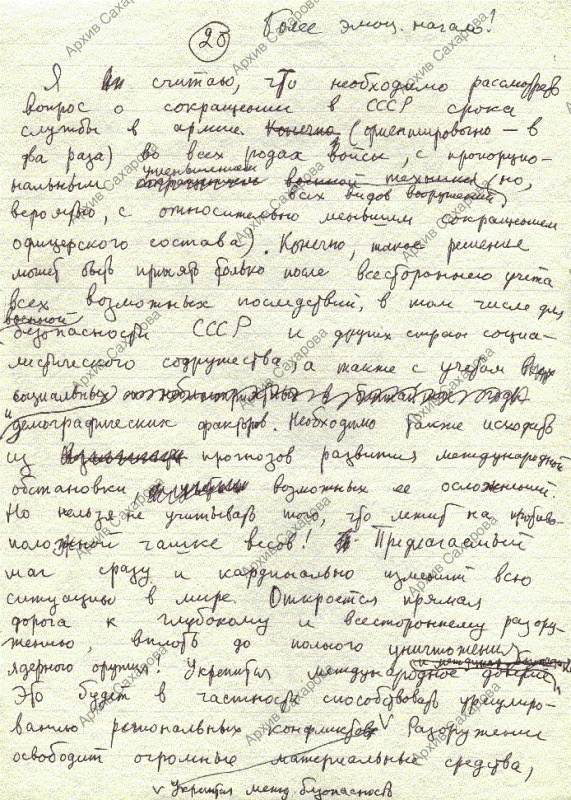 20 Более эмоц. начало!
Я считаю, что необходимо рассмотреть
вопрос о сокращении в СССР срока
службы в армии Конечно (ориентировочно – в
два раза) во всех родах войск, с пропорцио-
уменьшением
нальным военной техники (но,
всех видов вооружений
вероятно, с относительно меньшим сокращением
офицерского состава). Конечно, такое решение
может быть принято только после всестороннего учета
всех возможных последствий, в том числе для
военной
безопасности СССР и других стран социа-
листического содружества, а также с учетом
социальных
и демографических факторов. Необходимо также исходить
из прогнозов развития международной
обстановки возможных ее осложнений.
Но нельзя не учитывать того, что лежит на противо-
положной чашке весов! Предлагаемый
шаг сразу и кардинально изменит всю
ситуацию в мире. Откроется прямая
дорога к глубокому и всестороннему разору-
жению, вплоть до полного уничтожения
ядерного оружия! Укрепится международное доверие,
Это будет в частности способствовать урегулиро-
ванию региональных конфликтов V Разоружение
освободит огромные материальные средства,
V Укрепится межд. безопасность
Архив Сахарова